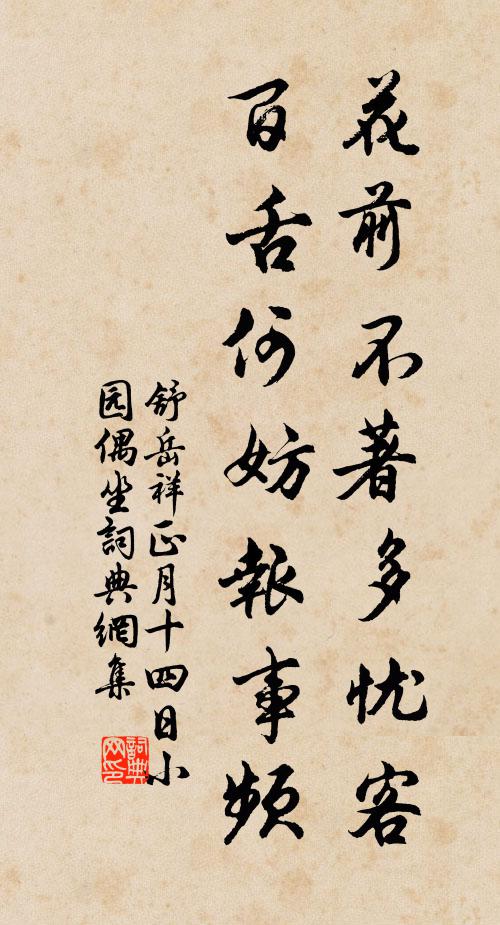 花前不著多忧客
百舌何妨報事頻
舒岳祥正月十四日小
园偶坐詞典網集
詞典
网印